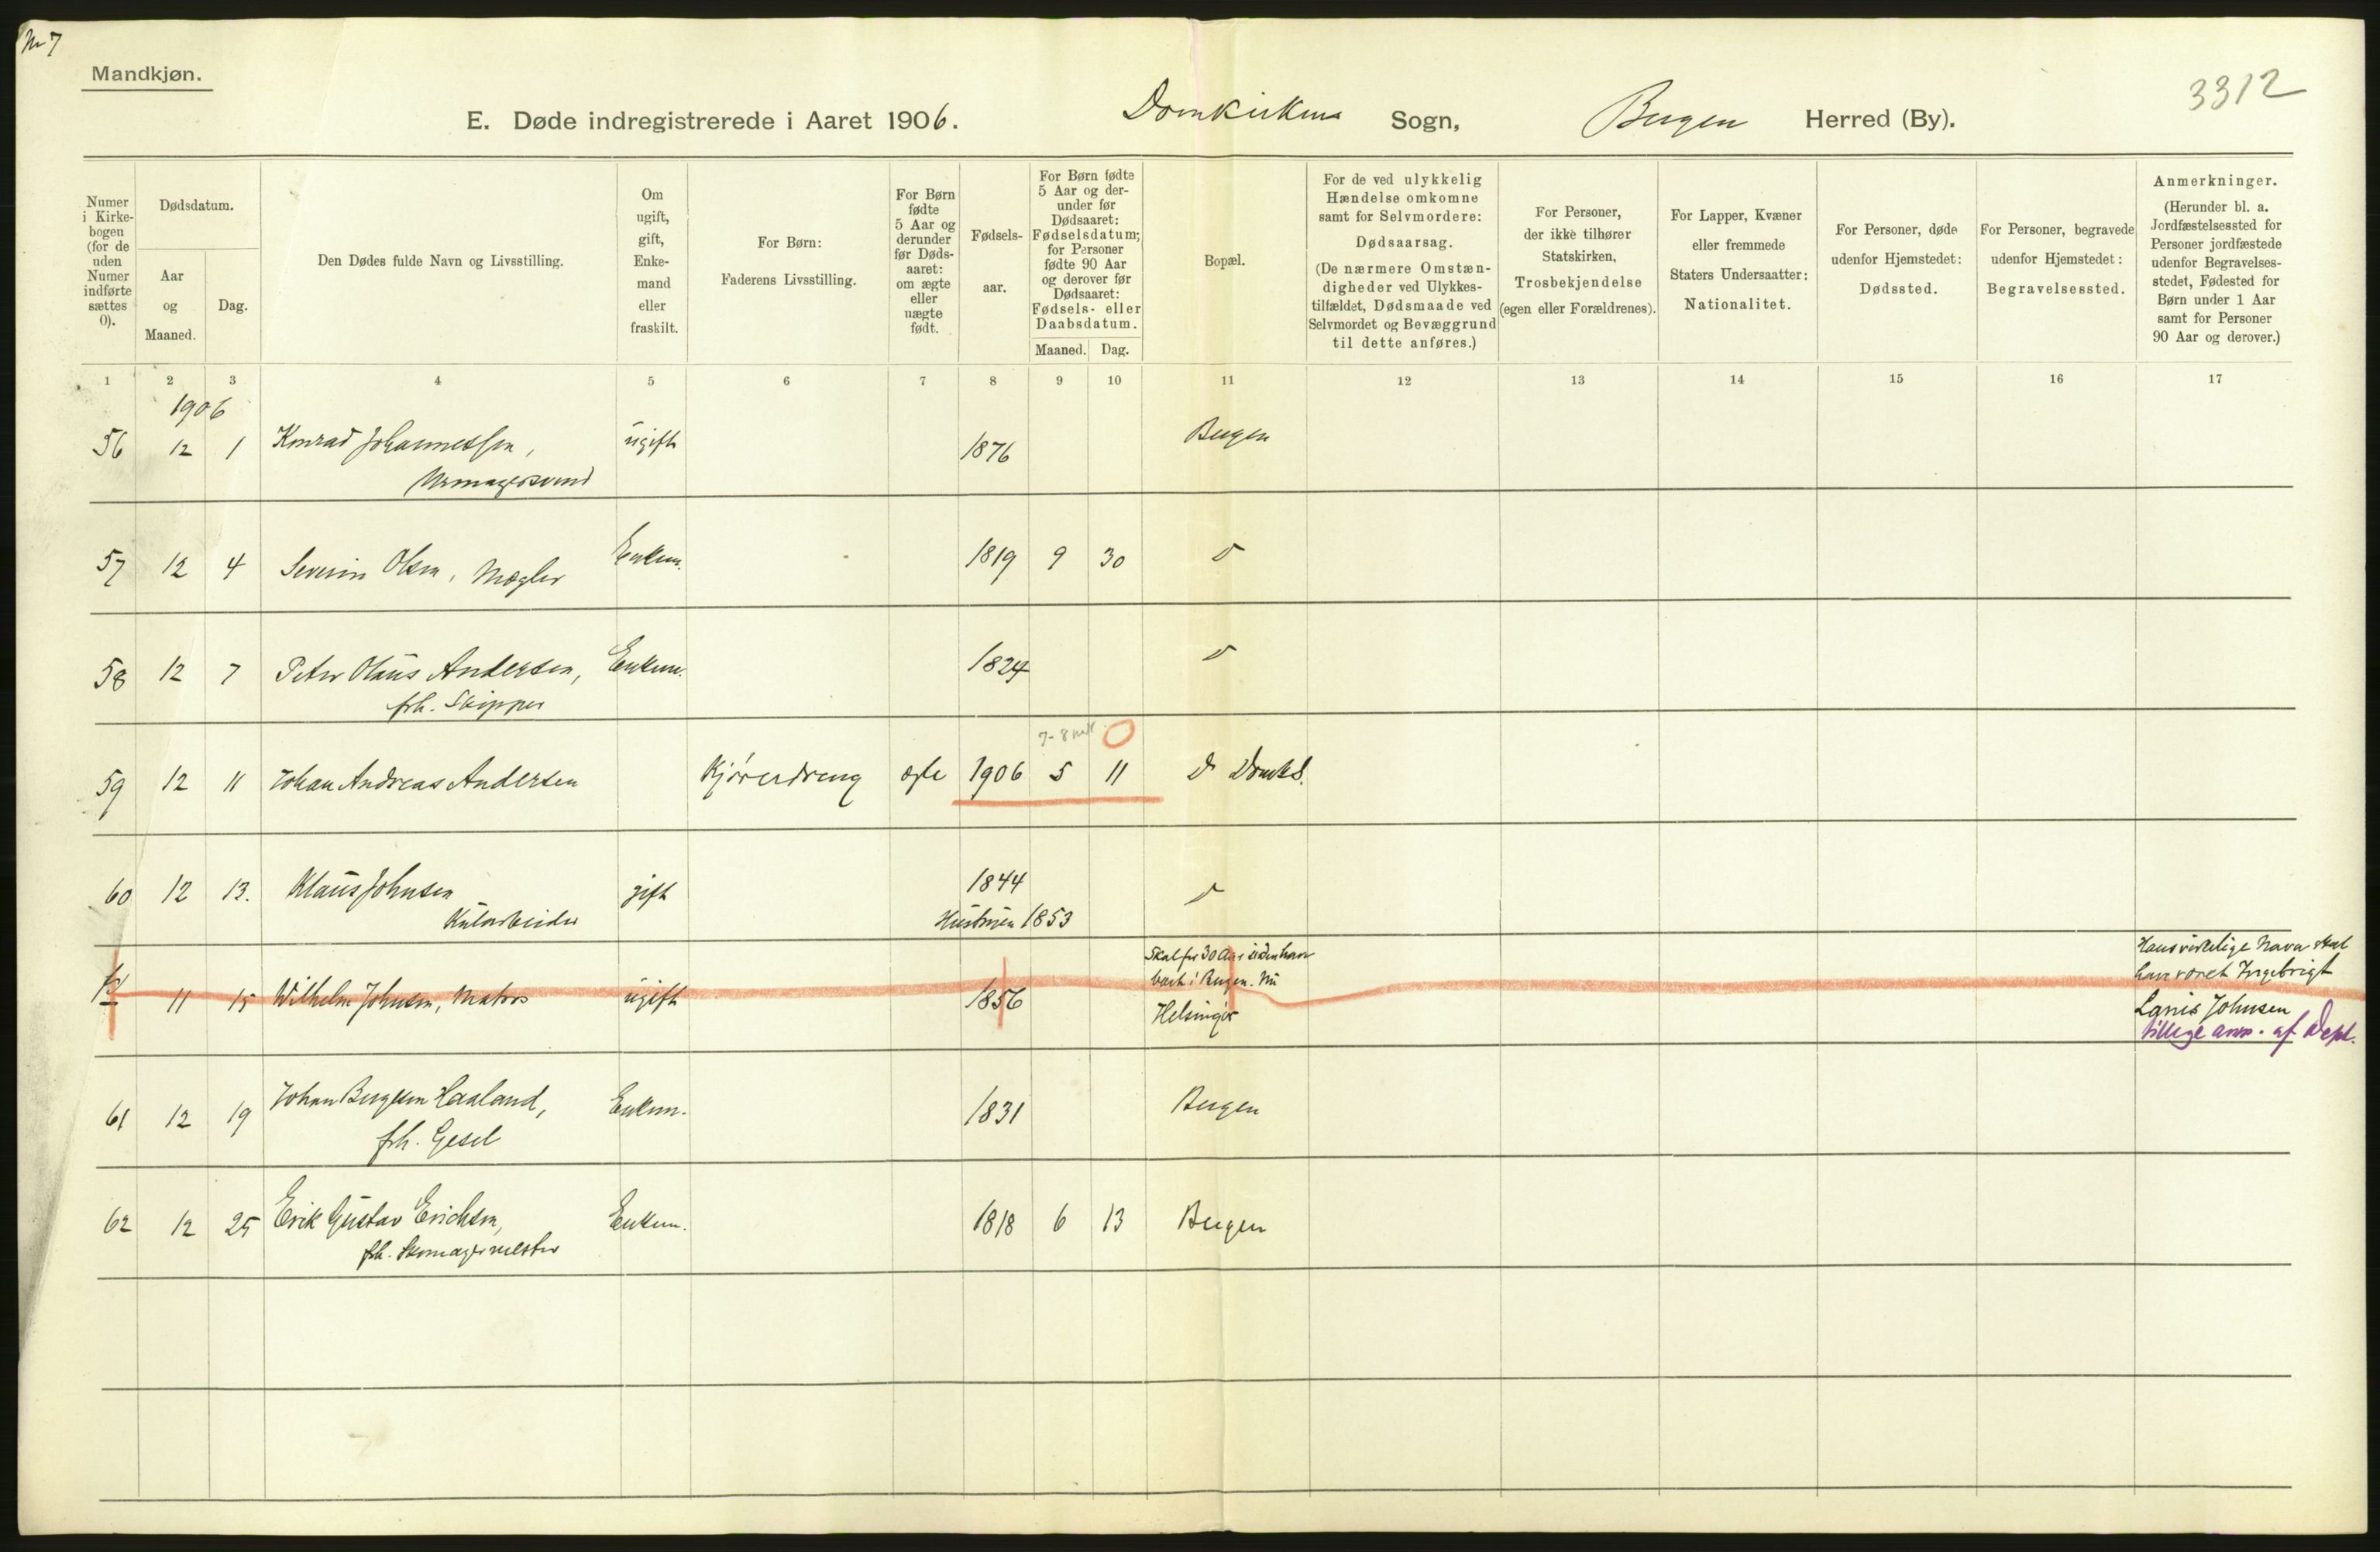 No 7
Mandkjøn.
3312
E. Døde indregistrerede i Aaret 1906. Domkirkens Sogn, Bergen Herred (By).
Numer i Kirke-bogen (for de uden Numer indførte sættes 0).
Dødsdatum.
Aar og Maaned.
Dag.
Den Dødes fulde Navn og Livsstilling.
Om ugift, gift, Enke-mand eller fraskilt.
For Børn:
Faderens Livsstilling.
For Børn fødte 5 Aar og derunder før Døds-aaret: om ægte eller uægte født.
Fødsels-aar.
For Børn fødte 5 Aar og der-under før Dødsaaret: Fødselsdatum; for Personer fødte 90 Aar og derover før Dødsaaret: Fødsels- eller Daabsdatum.
Maaned. Dag.
Bopæl.
For de ved ulykkelig Hændelse omkomne samt for Selvmordere: Dødsaarsag. (De nærmere Omstæn-digheder ved Ulykkes-tilfældet, Dødsmaade ved Selvmordet og Bevæggrund til dette anføres.)
For Personer, der ikke tilhører Statskirken, Trosbekjendelse (egen eller Forældrenes).
For Lapper, Kvæner eller fremmede Staters Undersaatter: Nationalitet.
For Personer, døde udenfor Hjemstedet: Dødssted.
For Personer, begravede udenfor Hjemstedet: Begravelsessted.
Anmerkninger. (Herunder bl. a. Jordfæstelsessted for Personer jordfæstede udenfor Begravelses-stedet, Fødested for Børn under 1 Aar samt for Personer 90 Aar og derover.)
1 2 3 4 5 6 7 8 9 10 11 12 13 14 15 16 17
1906
56 12 1 Konrad Johannessen, ugift 1876 Bergen
Urmagersvend
57 12 4 Severin Olsen, Mægler Enkem. 1819 9 30 D
58 12 7 Peter Olaus Andersen, Enkem. 1824 D
fh. Skipper
7-8 mdr 0
59 12 11 Johan Andreas Andersen Kjøredreng ægte 1906 5 11 D Domks.
60 12 13. Klaus Johnsen gift 1844 D
Kularbeider Hustruen 1853
Skal for 30 Aar siden have
boet i Bergen. Nu
Helsingør
11 15 Wilhelm Johnsen, Matros ugift 1856
Hans virkelige Navn skal
have været Ingebrigt
Johnsen
tillige anm. af Dept.
61 12 19 Johan Bergesen Haaland, Enkem. 1831 Bergen
fh. Gesel
62 12 25 Erik Gustav Erichsen, Enkem. 1818 6 13 Bergen
fh. Skomagermester